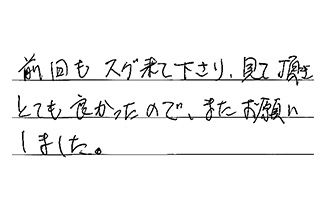 前回も スグ来て下さり、見て頂き
とても良かったので、またお願い
しました。